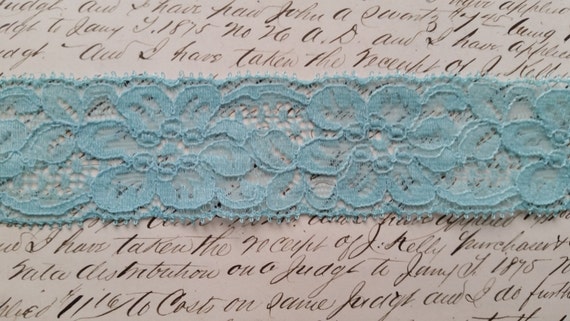 And I have paid John a Swartz $1745 being
Judgt to Jany 7. 1875 No 26 A. D. and I have applied
Judgt. And I have taken the receipt of J. Kell
and I have taken the receipt of J. Kelly Purchaser
rata distribution on a Judgt to Jany 7. 1875
applied $1116 to Costs on same Judgt and I do furth